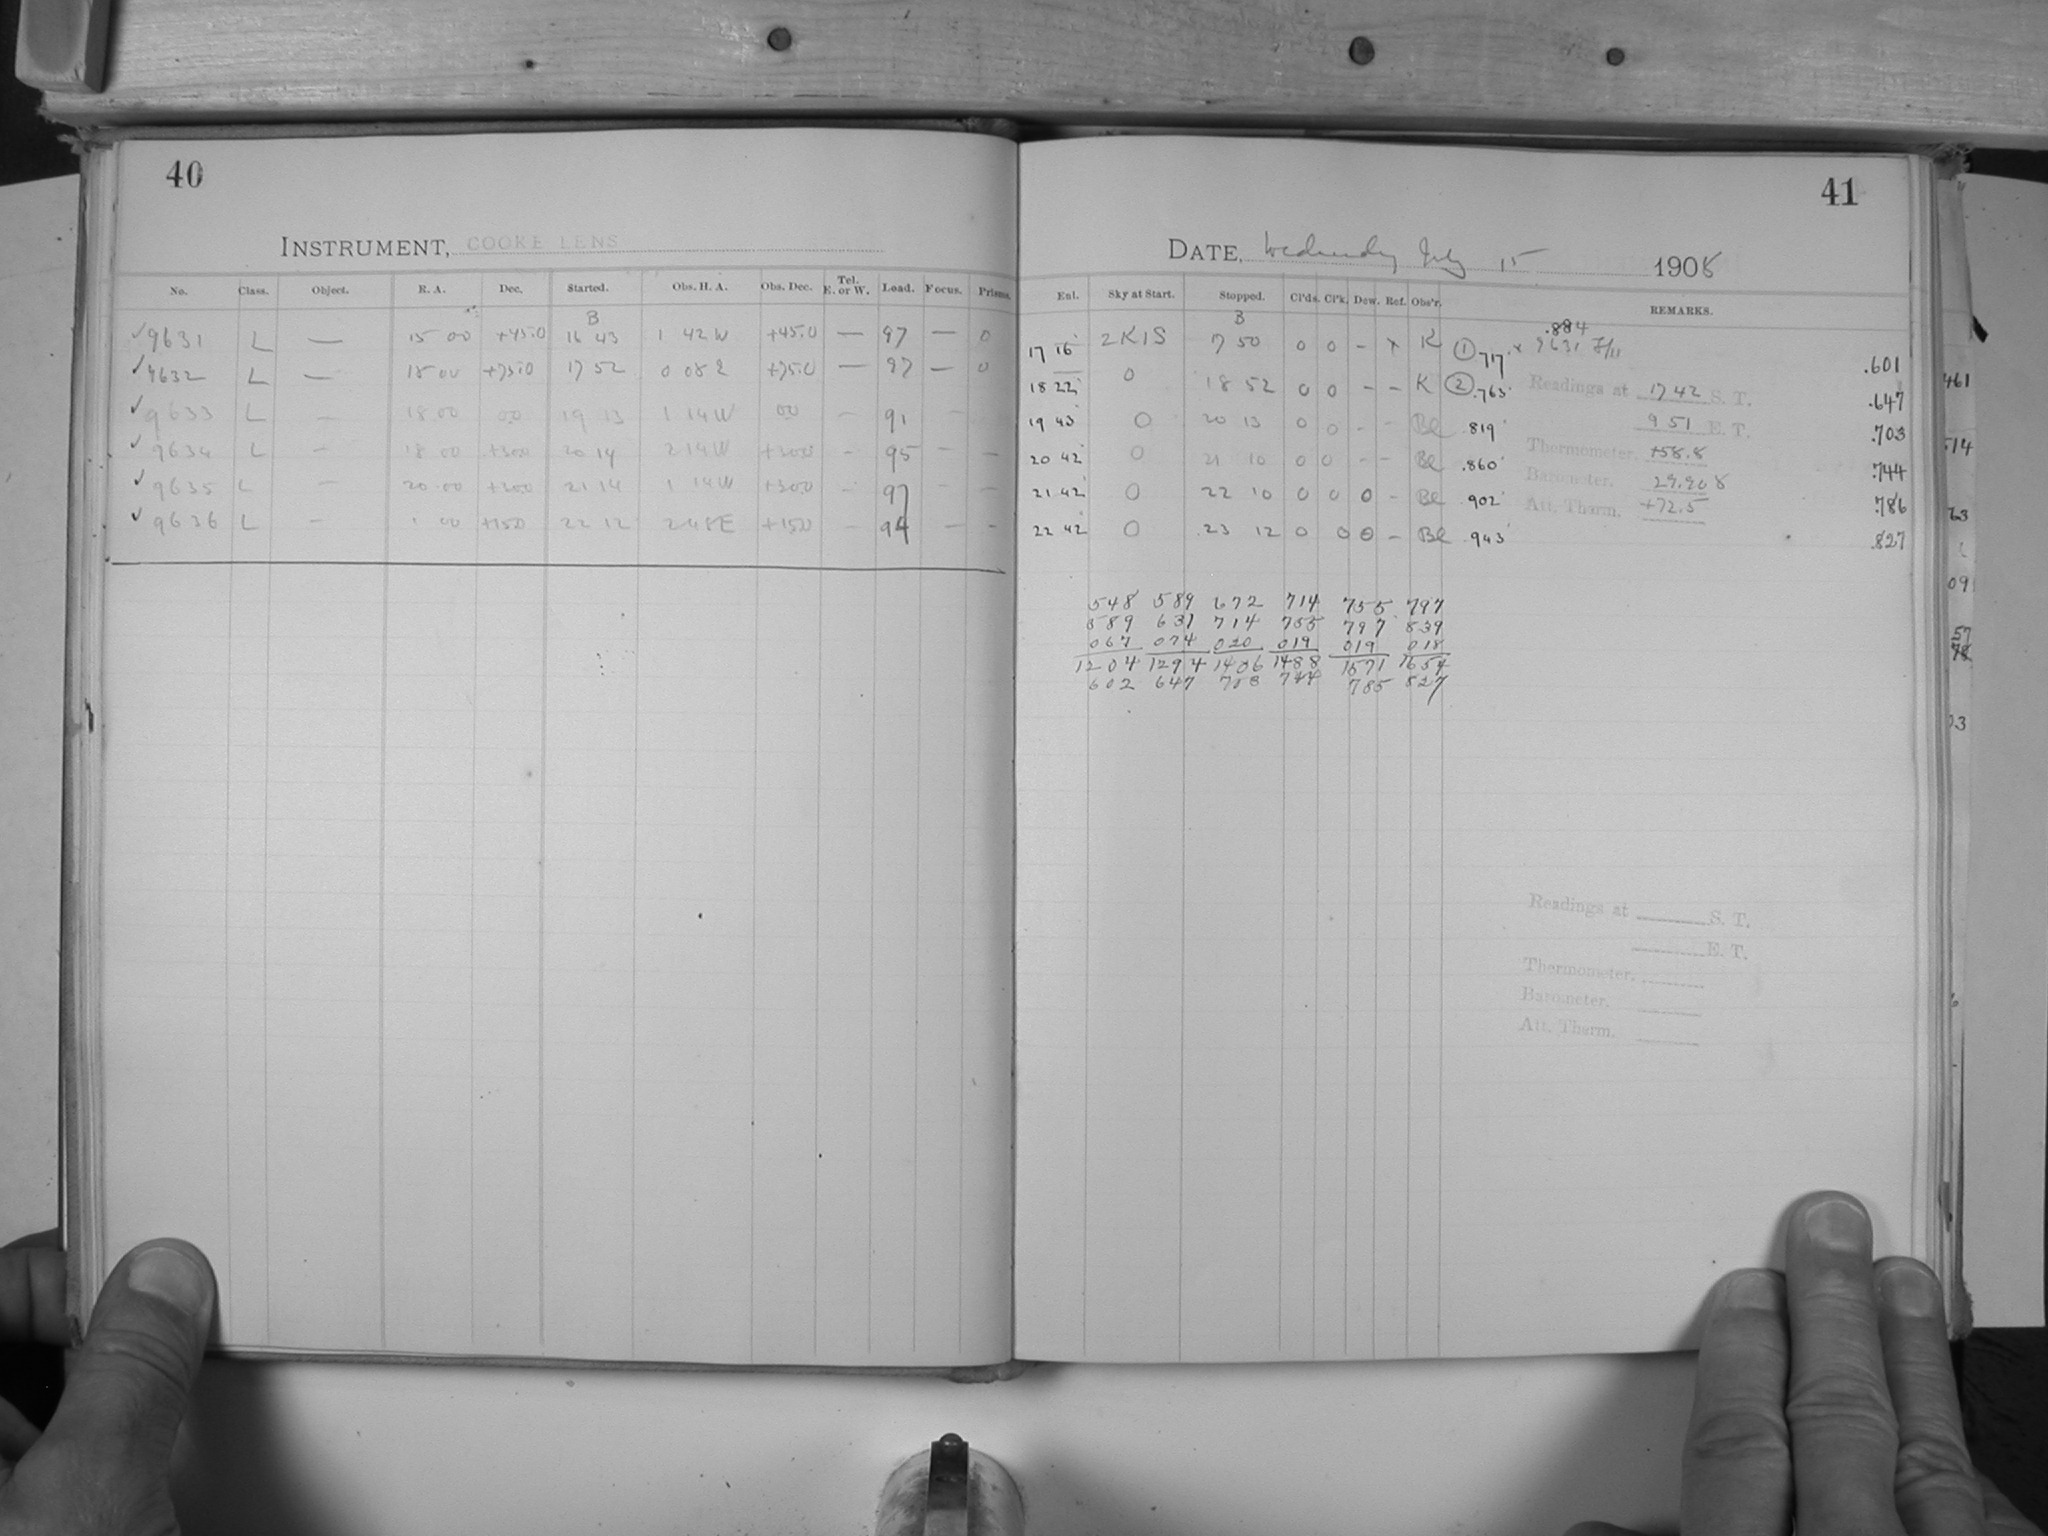 40
INSTRUMENT, COOKE LENS
No. Class. Object. R. A. Dec. Started. Obs. H. A. Obs. Dec. Tel. E. or W. Load. Focus. Prisms.
B
✓9631 L — 15 00 +45.0 16 43 1 42 W +45.0 — 97 — 0
✓9632 L — 18 00 +75.0 17 52 0 08 E +75.0 — 97 — 0
✓9633 L — 18 00 00 19 13 1 14 W 00 — 91 —
✓9634 L — 18 00 +300 20 14 2 14 W +300 — 95 — —
✓9635 L — 20 00 +300 21 14 1 14 W +300 — 97 — —
✓9636 L — 1 00 +150 22 12 2 48 E +150 — 94 — —
41
DATE, Wednesday July 15 1908
Ent. Sky at Start. Stopped. Cl'ds. Cl'k. Dew. Ref. Obs'r. REMARKS.
B
17 16 2K1S 17 50 0 0 – × K ① .717 × 9631 .884 .601
18 22 0 18 52 0 0 – – K ② .763 Readings at 17 42 S. T. .647
19 43 0 20 13 0 0 – – Bl .819 9 51 E. T. .703
20 42 0 21 10 0 0 – – Bl .860 Thermometer. +58.8 .744
21 42 0 22 10 0 0 0 – Bl .902 Barometer. 29.908 .786
Att. Therm. +72.5
22 42 0 23 12 0 0 0 – Bl .943 .827
548 589 672 714 755 797
589 631 714 755 797 839
067 074 020 019 019 018
1204 1294 1406 1488 1571 1654
602 647 703 744 785 827
Readings at S. T.
E. T.
Thermometer.
Barometer.
Att. Therm.
461
514
63
09
57
78
03